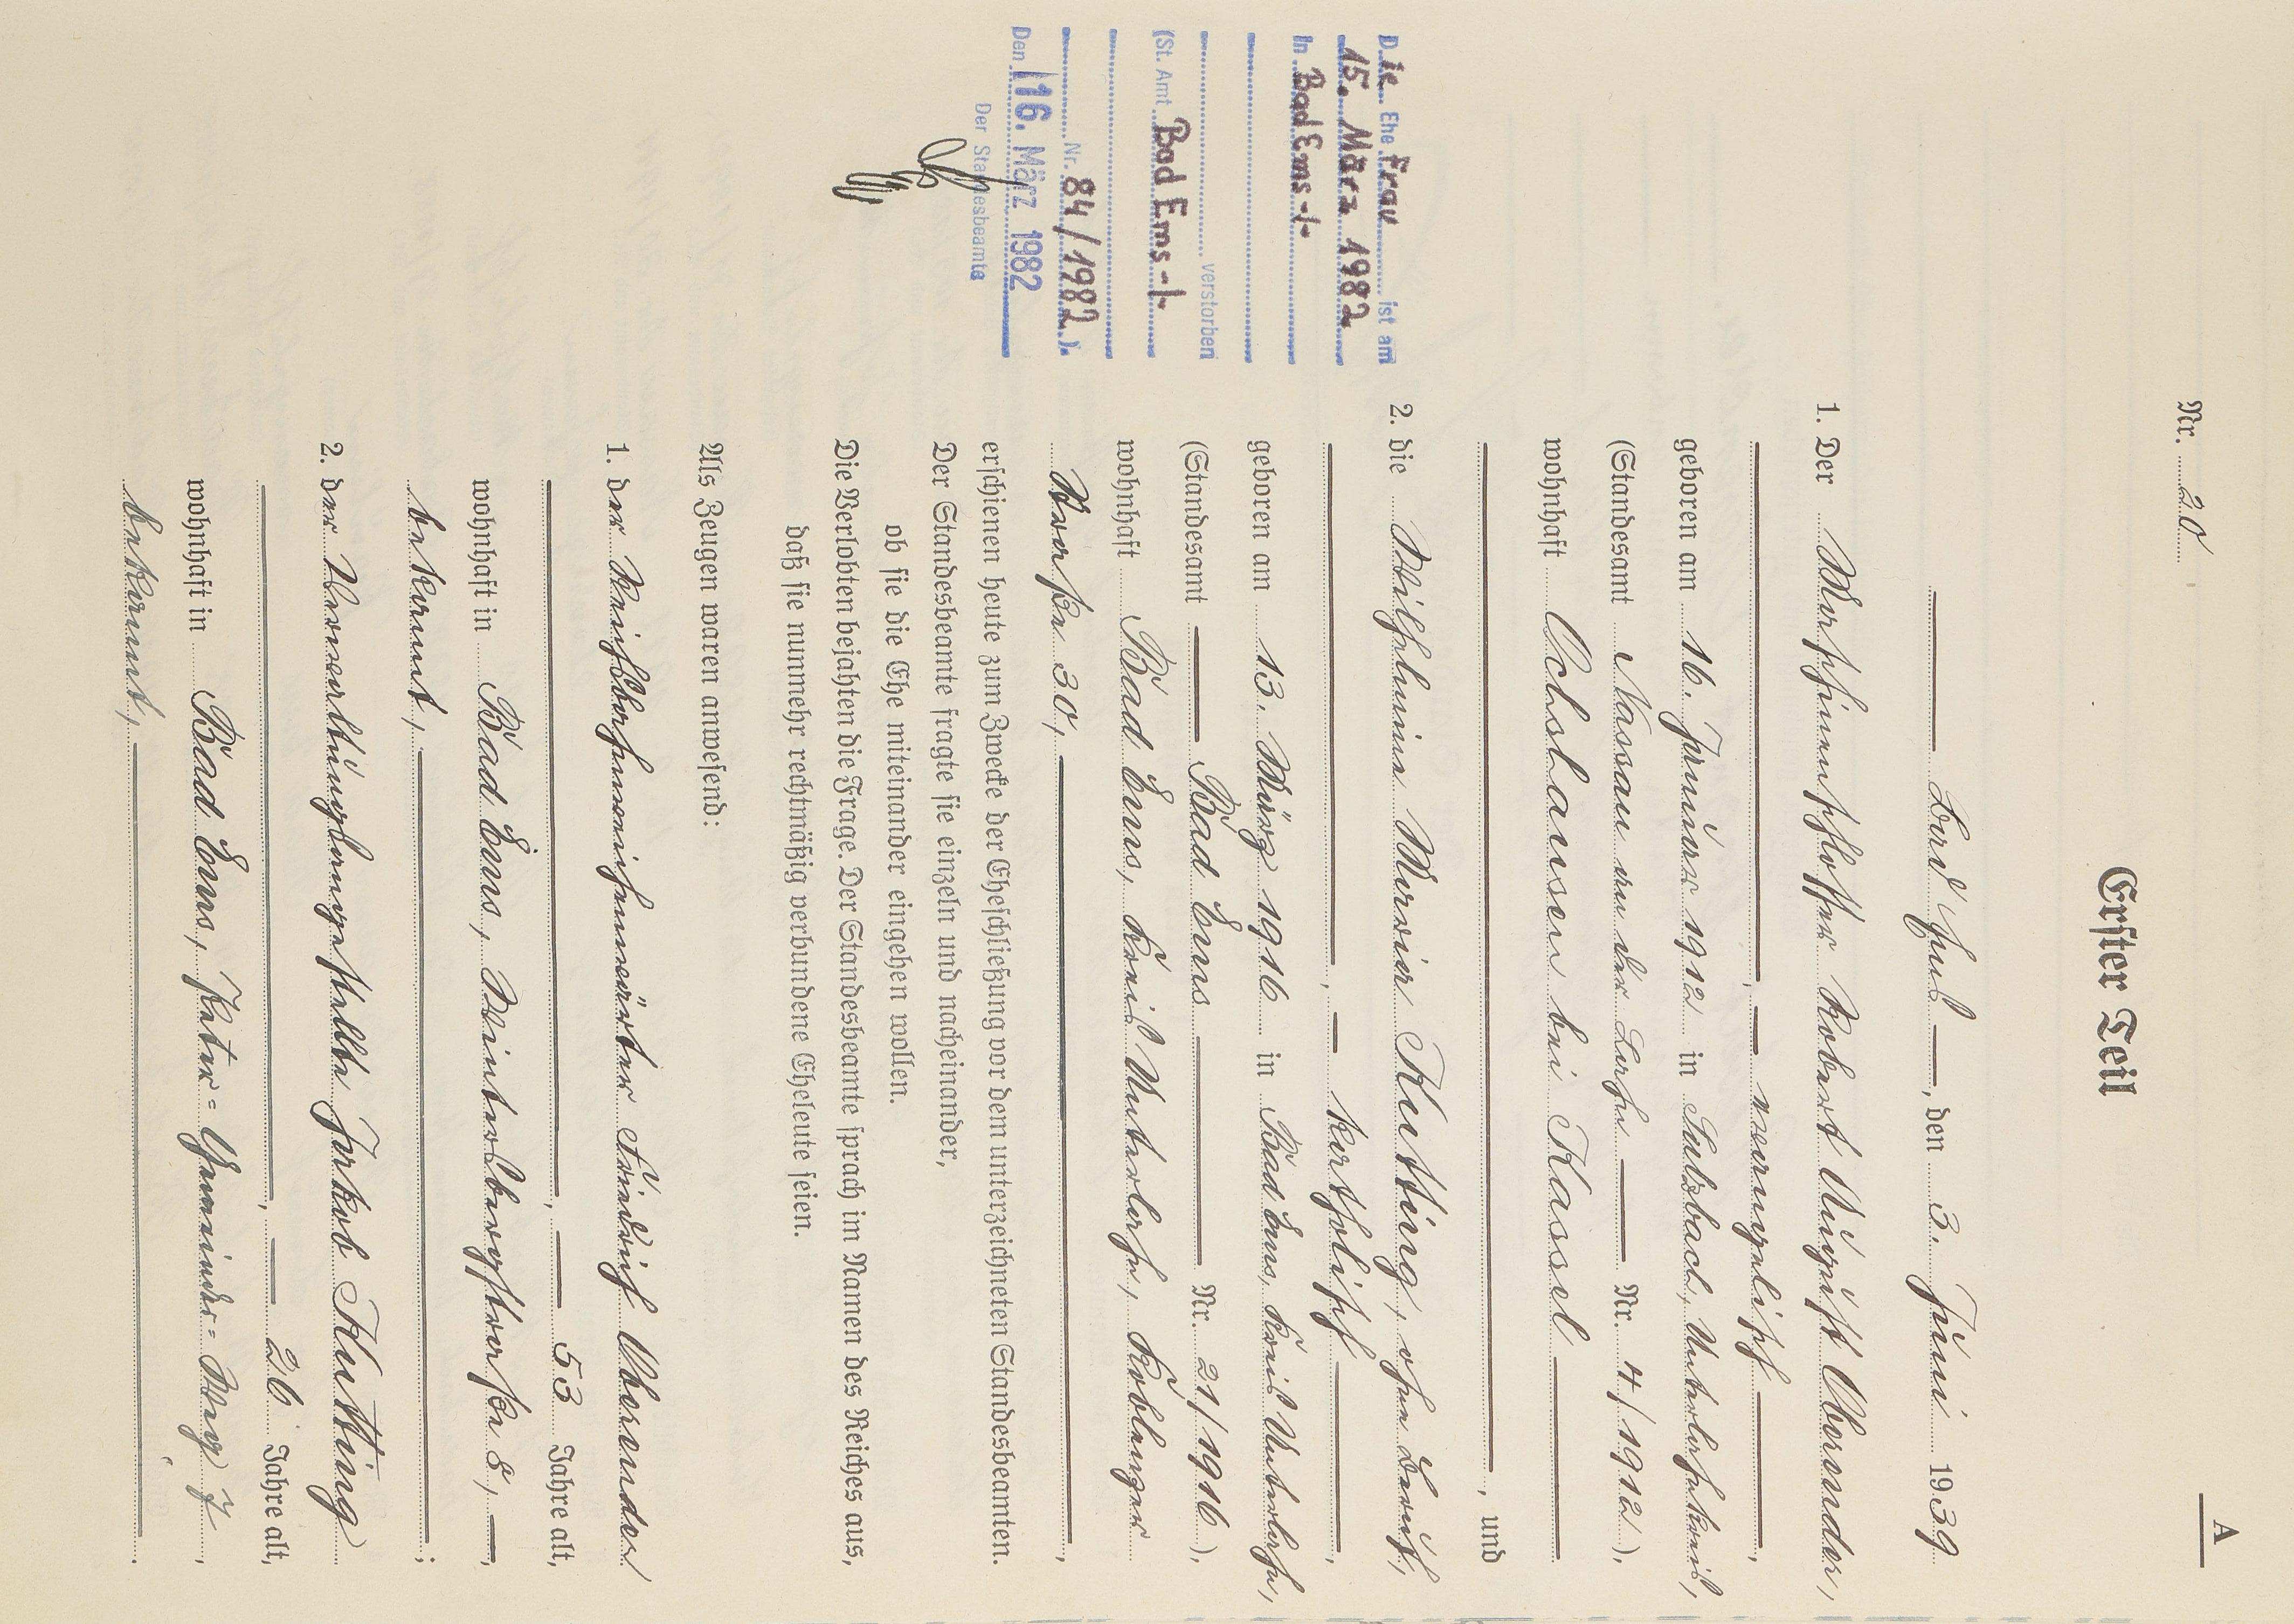 A
Nr. 20
Erster Teil
Bad Ems, den 3. Juni 1939
1. Der Maschinenschlosser Robert August
, evangelisch,
geboren am 16. Januar 1912 in Sulzbach, Unterlahnkreis,
(Standesamt Nassau an der Lahn Nr. 4/1912),
wohnhaft Ochshausen bei Kassel
, und
2. die Wilhelmine Maria Kutting, ohne Beruf,
, katholisch,
geboren am 13. März 1916 in Bad Ems, Kreis Unterlahn,
(Standesamt Bad Ems Nr. 21/1916),
wohnhaft Bad Ems, Kreis Unterlahn, Koblenzer
Straße 30,
erschienen heute zum Zwecke der Eheschließung vor dem unterzeichneten Standesbeamten.
Der Standesbeamte fragte sie einzeln und nacheinander,
ob sie die Ehe miteinander eingehen wollen.
Die Verlobten bejahten die Frage. Der Standesbeamte sprach im Namen des Reiches aus,
daß sie nunmehr rechtmäßig verbundene Eheleute seien.
Als Zeugen waren anwesend:
1. der Reichsbahnweichenwärter Friedrich
, 53 Jahre alt,
wohnhaft in Bad Ems, Winterbergstraße 8,
bekannt, ;
2. der Verwaltungsangestellte Jakob Kutting
, 26 Jahre alt,
wohnhaft in Bad Ems, Peter= =Weg 7,
bekannt, .
Die Ehe Frau ist am
15. März 1982
in Bad Ems -/-
verstorben
(St. Amt Bad Ems -/-
Nr. 84/1982).
Den 16. März 1982
Der Standesbeamte